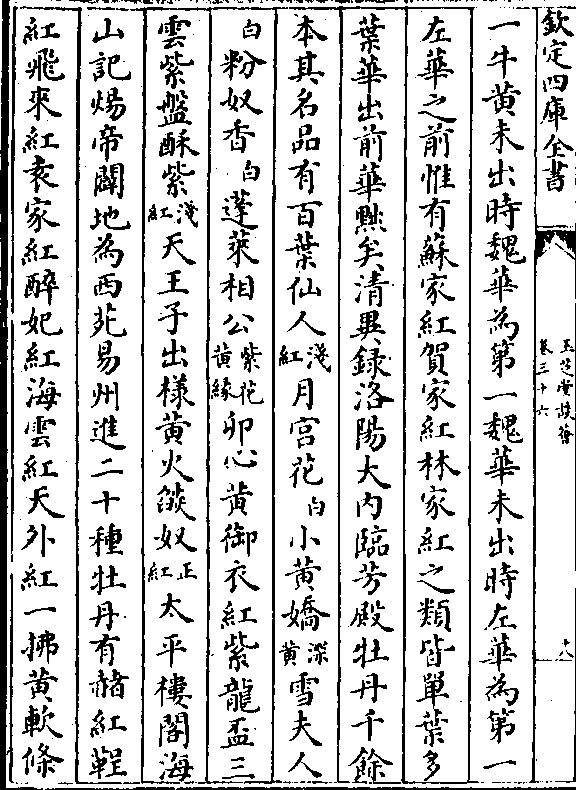 欽定四庫全書
玉芝堂談薈
卷三十六
十八
一牛黄未出時魏華為第一魏華未出時左華為第一
左華之前惟有蘇家紅賀家紅林家紅之類皆單葉多
葉華出前華黜矣清異録洛陽大内臨芳殿牡丹千餘
本其名品有百葉仙人淺紅月宮花白小黄嬌深黄雪夫人
白粉奴香白蓬萊相公紫花黄緣卵心黄御衣紅紫龍盃三
雲紫盤酥紫淺紅天王子出様黄火燄奴正紅太平樓閣海
山記煬帝闢地為西苑易州進二十種牡丹有赭紅鞓
紅飛來紅袁家紅醉妃紅海雲紅天外紅一拂黄軟條